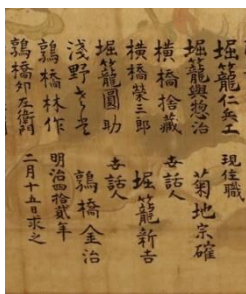 堀籠仁兵工
堀籠與惣治
横橋捨藏
横橋榮三郎
堀籠圓助
浅野
鶉橋林作
鶉橋卯左衛門
現住職
菊地宗確
世話人
堀籠新吉
世話人
鶉橋金治
明治四拾貳年
二月十五日求之